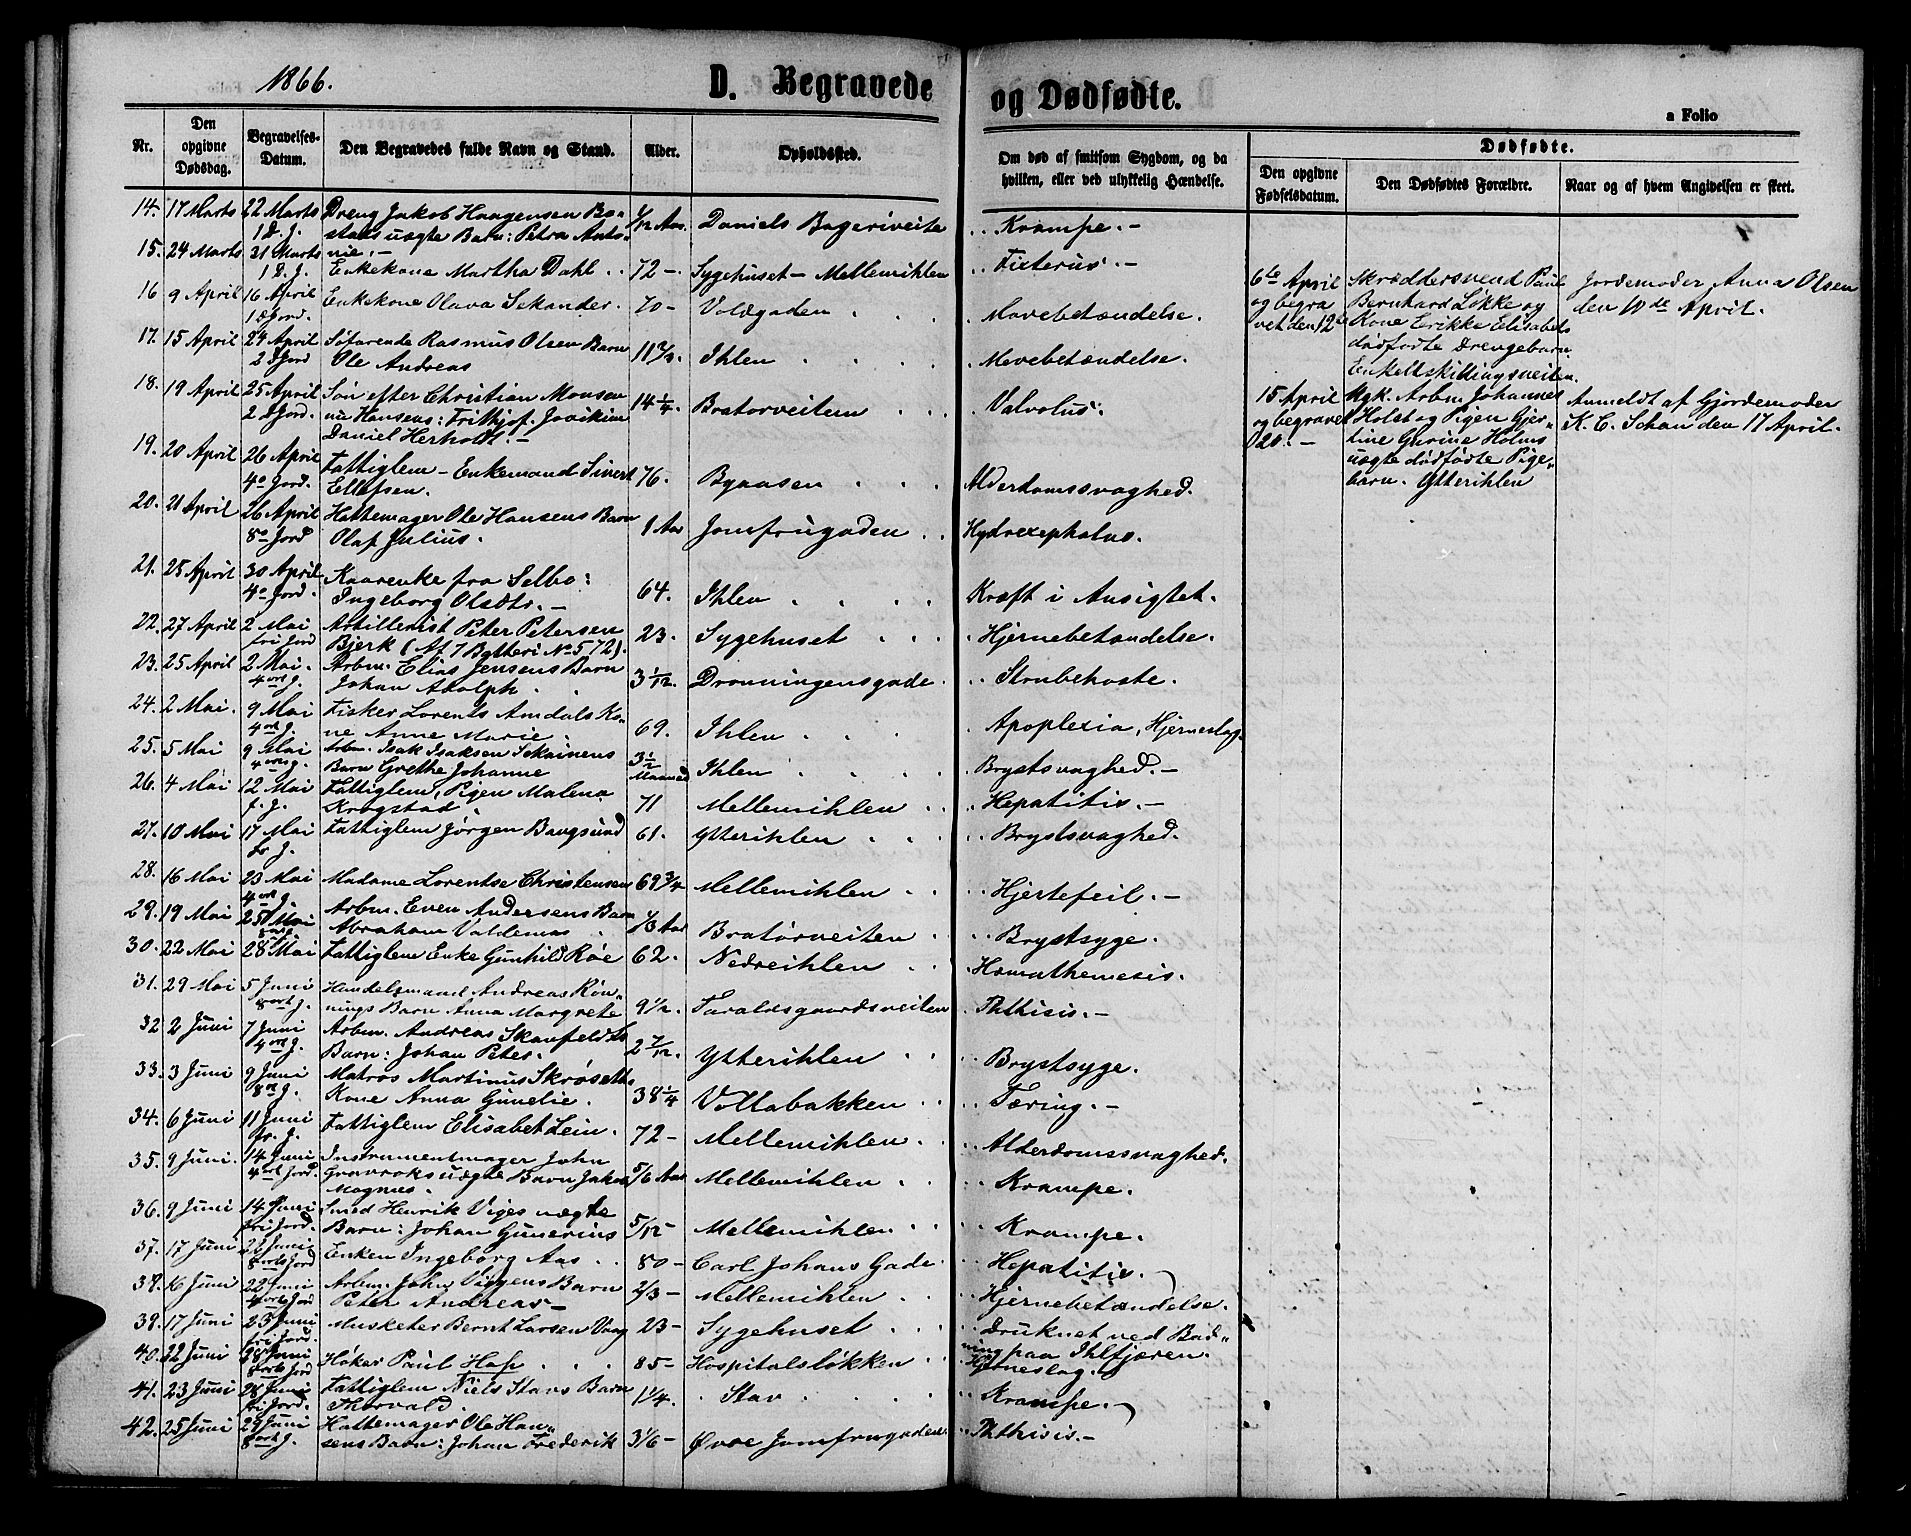 1866.
D. Begravede og Dødfødte.
a Folio
Nr.
Den opgivne Dødsdag.
Begravelses-Datum.
Den Begravedes fulde Navn og Stand.
Alder.
Opholdssted.
Om død af smitsom Sygdom, og da hvilken, eller ved ulykkelig Hændelse.
Dødfødte.
Den opgivne Fødselsdatum.
Den Dødfødtes Forældre.
Naar og af hvem Angivelsen er skeet.
14. 17 Marts 22 Marts Dreng Jakob Haagensen Bo- 1/12 Aar. Daniels Bageriveite Krampe.-
1 d. J. stads uægte Barn: Petra Anto-
15. 24 Marts 31 Marts nie.-
1 d. J. Enkekone Martha Dahl .. 72 -. Sygehuset - Mellemihlen Ikterus.-
16 9 April 16 April Enkekone Olava Sekander. 70- Voldgaden . . . Mavebetændelse.
17. 15 April 24 April Søfarende Rasmus Olsen Barn
2 Jord Ole Andreas 11 Ihlen . . . Mavebetændelse.
18. 19 April 25 April Søn efter Christian Monsen
2 Jord. Hansens: Frithjof Joakim 14 1/4. Bratørveiten . . . Valvolus.
Daniel Herholdt.-
19. 20 April 26 April Fattiglem - Enkemand Sivert 76. Byaasen . . . Alderdomssvaghed.
4 Jord. Ellefsen.
20. 21 April 26 April Hattemager Ole Hansens Barn 1 Aar Jomfrugaden . . Hydrocephalus.
8 Jord Olaf Julius.
21. 25 April 30 April Kaarenke fra Selbo:
4 Jord. Ingeborg Olsdtr.- 64. Ihlen . . . . Kræft i Ansigtet.
22. 27 April 2 Mai Artillerist Peter Petersen 23. Sygehuset . . . Hjernebetændelse.
fri Jord Bjerk (Af 7 Batteri No 572).
23. 25 April 2 Mai. Arbm. Elias Jensens Barn
4 J. Johan Adolph. . 3 1/12. Dronningensgade. Strubehoste.
24. 2 Mai. 9 Mai Fisker Lorents Amdals Ko-
4 J. ne Anne Marie. 69. Ihlen . . . Apoplexia, Hjerneslag.
25. 5 Mai 9 Mai Arbm. Isak Isaksen Sekainens 3 1/2
4 J. Barn Grethe Johanne Maaned Ihlen . . . . Brystsvaghed.-
26. 4 Mai 12 Mai Fattiglem, Pigen Malena
f. J. Krogstad . 71 Mellemihlen . . Hepatitis.-
27. 10 Mai 17 Mai Fattiglem Jørgen Bangsund 61. Ytterihlen . . . Brystsvaghed.
fr J.
28. 16 Mai 23 Mai Madame Lorentse Christensen 69 3/4 Mellemihlen . . Hjertefeil.-
4 J.
29. 19 Mai 25 Mai Arbm. Even Andersens Barn
Abraham Valdemar . 1/3 Aar Bratørveiten . . Brystsyge.
30. 22 Mai 28 Mai Fattiglem Enke Gunhild Røe 62. Nedreihlen . . Hæmathemesis.
31. 29 Mai 5 Juni Handelsmand Andreas Røn-
8 J. nings Barn Anna Margrete 9 1/2. Taraldsgaardsveiten Phthisis.-
32 2 Juni 7 Juni Arbm. Andreas Skanfeldts
4 J. Barn: Johan Peter. 2 7/12. Ytterihlen . . Brystsyge.
33. 3 Juni 9 Juni Matros Martinus Skrøseths
8 J. Kone Anna Gunelie. 38 1/4 Vollabakken . . Tæring.-
34. 6 Juni 11 Juni Fattiglem Elisabet Lein. 72- Mellemihlen . . Alderdomssvaghed.
fr. J.
35. 9 Juni. 14 Juni Instrumentmager John
4 Jord. Gravroks uægte Barn Jakob 5/6 Aar Mellemihlen . . Krampe.
Magnus.
36. 9 Juni 14 Juni Smed Henrik Viges uægte
fri Jord. Barn: Johan Gunerius 5/12- Mellemihlen . . Krampe.
37. 17 Juni 22 Juni Enken Ingeborg Aas . . 80- Carl Johans Gade. Hepatitis.
8 Jord
38. 16 Juni 22 Juni Arbm. John Viggens Barn 2/3- Mellemihlen . . Hjernebetændelse.
4 Jord Peter Andreas-
39. 17 Juni 23 Juni Musketer Bernt Larsen Vaag 23- Sygehuset . . . Druknet ved Bad-
fri Jord. ning paa Ihlfjæren.
40. 22 Juni Juni Høker Paul Haf . . . 85- Hospitalsløkken . . Hjerneslag.
8 Jord
41. 23 Juni 28 Juni Fattiglem Niels Stavs Barn 1 1/4. . Stav . . . Krampe.
fri Jord. Thorvald.
42. 25 Juni 29 Juni Hattemager Ole Han-
8 J. sens Barn: Johan Frederik 3 1/6- Øvre Jomfrugaden. Phthisis.-
6te April Skræddersvend Paul Jordemoder Anna Olsen
og begra Bernhard Løkke og den 10de April.
vet den 12te Kone Erikke Elisabets
dødfødte Drengebarn.
Enkeltskillingsveiten.
15 April Ugk. Arbm. Johannes Anmeldt af Gjordemoder
og begravet Holst og Pigen Gjer- K. C. Schan den 17 April.
20.- tine Gurine Holms
uægte dødfødte Pige-
barn. Ytterihlen